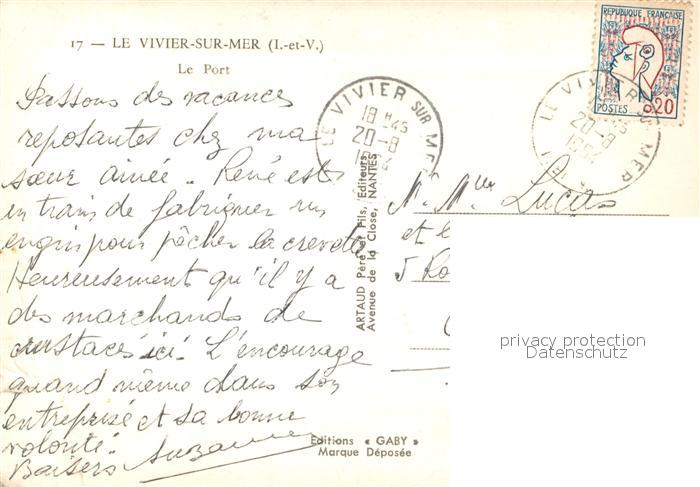 17 — LE VIVIER-SUR-MER (I.-et-V.)
Le Port
Passons des vacances
reposantes chez ma
sœur aînée. René est
en train de fabriquer un
engin pour pêcher la crevette
Heureusement qu'il y a
des marchands de
crustacés ici. L'encourage
quand même dans son
entreprise et sa bonne
volonté.
Baisers Suzanne
LE VIVIER SUR MER
18 H45
20-8
ARTAUD Père et Fils, Editeurs
Avenue de la Close, NANTES
Editions « GABY »
Marque Déposée
REPUBLIQUE FRANÇAISE
0,20
POSTES
LE VIVIER SUR MER
20-8
M. Mlle Lucas
et
5
privacy protection
Datenschutz